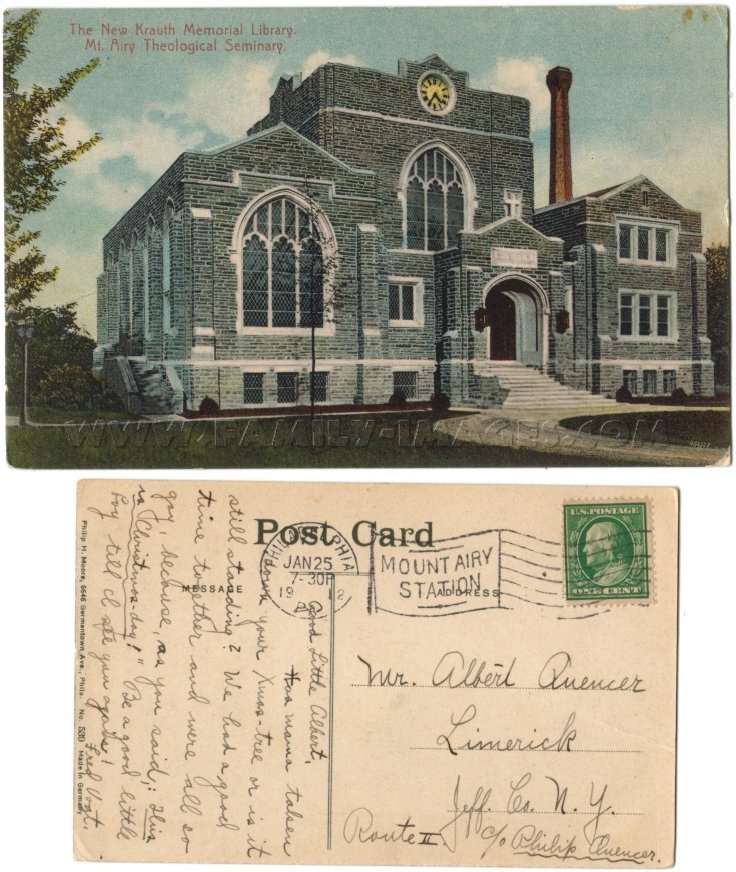 The New Krauth Memorial Library.
Mt. Airy Theological Seminary.
WWW.FAMILY-IMAGES.COM
Post Card
PHILADELPHIA
JAN 25
7-30P
19 12
MOUNT AIRY
STATION
U.S. POSTAGE
ONE CENT
MESSAGE
ADDRESS
Good Little Albert,
Has mama taken
down your Xmas-tree or is it
still standing? We had a good
time together and were all so
gay, because, as you said; "this
is Christmas-day!" Be a good little
boy till I see you again!
Fred Vogt.
Mr. Albert Quencer
Limerick
Jeff. Co. N.Y.
Route II
c/o Philip Quencer.
Philip H. Moore, 6646 Germantown Ave., Phila. No. 530 Made in Germany